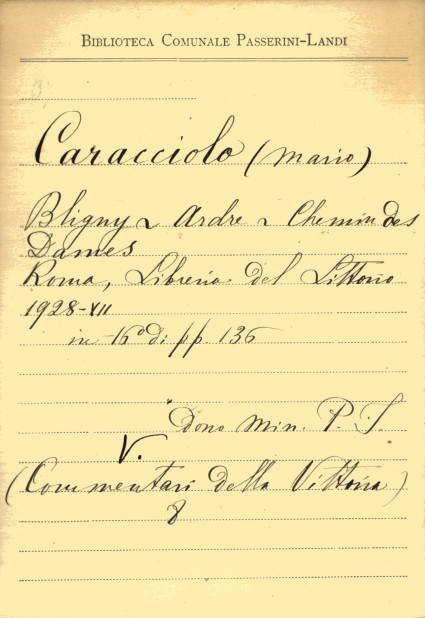 BIBLIOTECA COMUNALE PASSERINI-LANDI
Caracciolo (Mario)
Bligny ~ Ardre ~ Chemin des
Dames
Roma, Libreria del Littorio
1928-VII
in 16° di pp. 136
Dono Min. P. I.
V.
(Commentari della Vittoria)
8